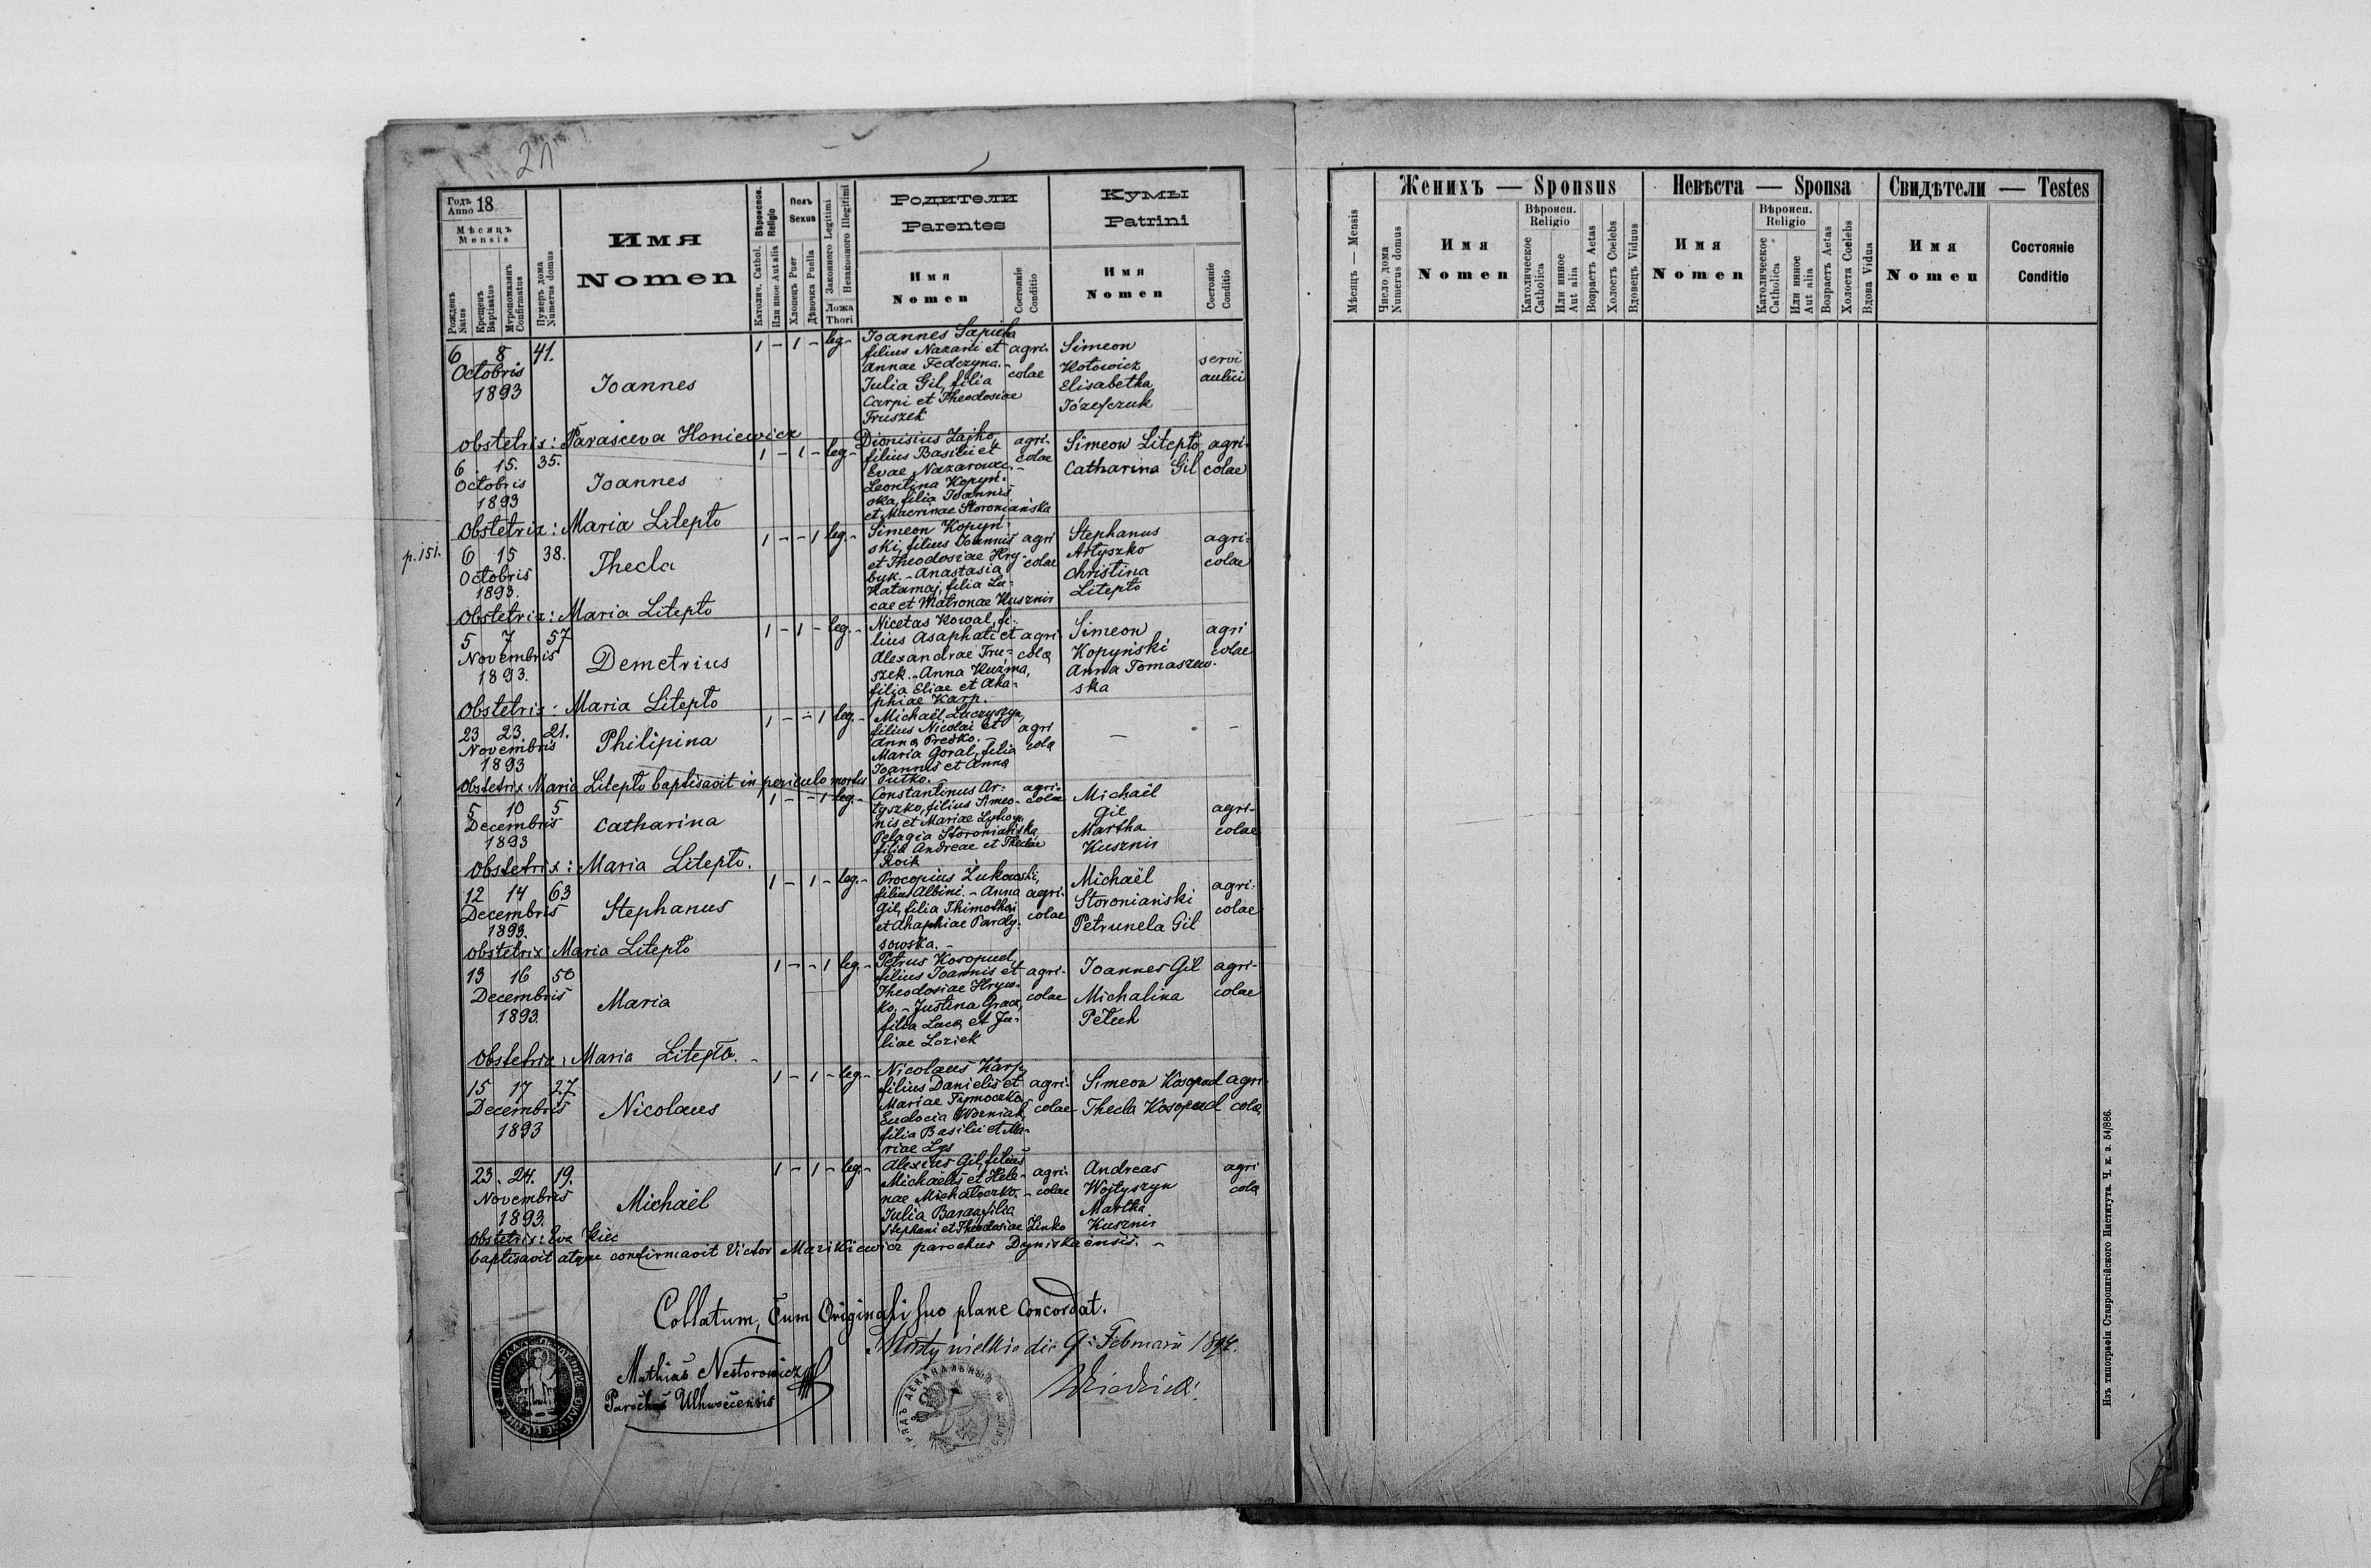 21
Годъ
Anno 18
Мѣсяцъ
Mensis
Рожденъ
Natus
Крещенъ
Baptisatus
Мѵропомазанъ
Confirmatus
Нумеръ дома
Numerus domus
Имя
Nomen
Вѣроиспов.
Religio
Католич. Cathol.
Или иное Aut alia
Полъ
Sexus
Хлопецъ Puer
Дѣвочка Puella
Законного Legitimi
Незаконного Illegitimi
Ложа
Thori
Родители
Parentes
Имя
Nomen
Состояніе
Conditio
Кумы
Patrini
Имя
Nomen
Состояніе
Conditio
6 8 41.
Octobris
1893
Joannes
1 - 1 - leg -
Joannes Sapieha
filius Nazarii et
Annae Fedczyna.
Julia Gil, filia
Carpi et Theodosiae
Fruszek
agri-
colae
Simeon
Kotowicz
Elisabetha
Józefczuk
servi
aulici
Obstetrix: Parasceva Honiewicz
6. 15. 35.
Octobris
1893
Joannes
1 - 1 - leg -
Dionisius Zajko,
filius Basilii et
Evae Nazarowec. -
Leontina Kopyń-
ska, filia Joannis
et Macrinae Storoniańska
agri-
colae
Simeon Litepło
Catharina Gil
agri-
colae
Obstetrix: Maria Litepło
p. 151.
6 15 38.
Octobris
1893.
Thecla
1 - - 1 leg. -
Simeon Kopyń-
ski, filius Joannis
et Theodosiae Hry-
byk. - Anastasia
Hatamaj, filia Lu-
cae et Matronae Kusznir
agri
colae
Stephanus
Artyszko
Christina
Litepło
agri-
colae
Obstetrix: Maria Litepło
5 7 57
Novembris
1893.
Demetrius
1 - 1 - leg. -
Nicetas Kowal, fi-
lius Asaphati et
Alexandrae Fru-
szek. - Anna Kuzma,
filia Eliae et Aha-
phiae Karp.
agri-
colae
Simeon
Kopyński
Anna Tomaszew-
ska
agri
colae
Obstetrix: Maria Litepło
23 23 21.
Novembris
1893
Philipina
1 - - 1 leg. -
Michaël Luczyszyn,
filius Nicolai et
Anna Predko. -
Maria Goral, filia
Joannis et Anna
Putko.
agri
cola
Obstetrix Maria Litepło baptisavit in periculo mortis
5 10 5
Decembris
1893
Catharina
1 - - 1 leg. -
Constantinus Ar-
tyszko, filius Simeo-
nis et Mariae
Pelagia Storoniańska,
filia Andreae et Theclae
Roik
agri-
colae
Michaël
Gil
Martha
Kusznir
agri-
colae
Obstetrix: Maria Litepło.
12 14 63
Decembris
1893.
Stephanus
1 - 1 - leg. -
Procopius Żukowski,
filius Albini. - Anna
Gil, filia Thimothei
et Ahaphiae Pardy-
sowska. -
agri-
colae
Michaël
Storoniański
Petrunela Gil
agri-
colae
Obstetrix: Maria Litepło
13 16 50
Decembris
1893.
Maria
1 - - 1 leg. -
Petrus Kosopud,
filius Joannis et
Theodosiae Hryw-
ko. - Justina Gracz,
filia Luca et Ju-
liae Loziek
agri-
colae
Joannes Gil
Michalina
Petuch
agri-
colae
Obstetrix: Maria Litepło. -
15 17 27
Decembris
1893
Nicolaus
1 - 1 - leg. -
Nicolaus Karp,
filius Danielis et
Mariae Tymoczko
Eudocia Wozniak,
filia Basilii et Ma-
riae Lys
agri-
colae
Simeon Kosopud
Thecla Kosopud
agri-
cola
23. 24. 19.
Novembris
1893.
Michaël
1 - 1 - leg. -
Alexius Gil, filius
Michaelis et Hele-
nae Michałoczko. -
Julia Baran, filia
Stephani et Theodosiae Zinko
agri-
colae
Andreas
Wojtyszyn
Martha
Kusznir
agri
cola
Obstetrix: Eva Kiec
baptisavit atque confirmavit Victor Mazikiewicz parochus Dyniskaensis. -
Collatum, Cum Originali suo plane Concordat.
Mosty wielkie die 9. Februarii 1894.
Mathias Nestorowicz
Parochus Uhnovensis
Мѣсяцъ — Mensis
Число дома
Numerus domus
Женихъ — Sponsus
Имя
Nomen
Вѣроисп.
Religio
Католическое
Catholica
Или инное
Aut alia
Возрастъ Aetas
Холостъ Coelebs
Вдовецъ Viduus
Невѣста — Sponsa
Имя
Nomen
Вѣроисп.
Religio
Католическое
Catholica
Или инное
Aut alia
Возрастъ Aetas
Холоста Coelebs
Вдова Vidua
Свидѣтели — Testes
Имя
Nomen
Состояніе
Conditio
Изъ типографіи Ставропигійского Института. Ч. к. з. 54/886.